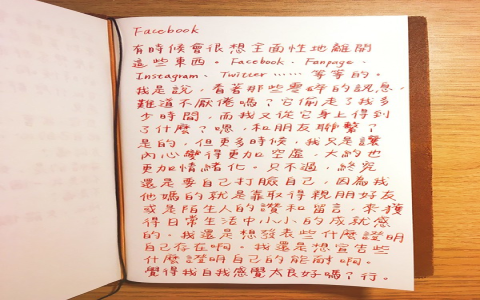 Facebook
有時候會很想全面性地離開
這些東西。Facebook、Fanpage、
Instagram、Twitter……等等的。
我是說,看著那些零碎的訊息,
難道不厭倦嗎?它偷走了我多
少時間,而我又從它身上得到
了什麼?嗯,和朋友聯繫?
是的,但更多時候,我只是讓
內心變得更加空虛,大約也
更加情緒化。只不過,終究
還是要自己打臉自己,因為我
他媽的就是靠取得親朋好友
或是陌生人的讚和留言,來獲
得日常生活中小小的成就感
的。我還是想發表些什麼證明
自己存在啊。我還是想宣告些
什麼證明自己的能耐啊。
覺得我自我感覺太良好嗎?行。